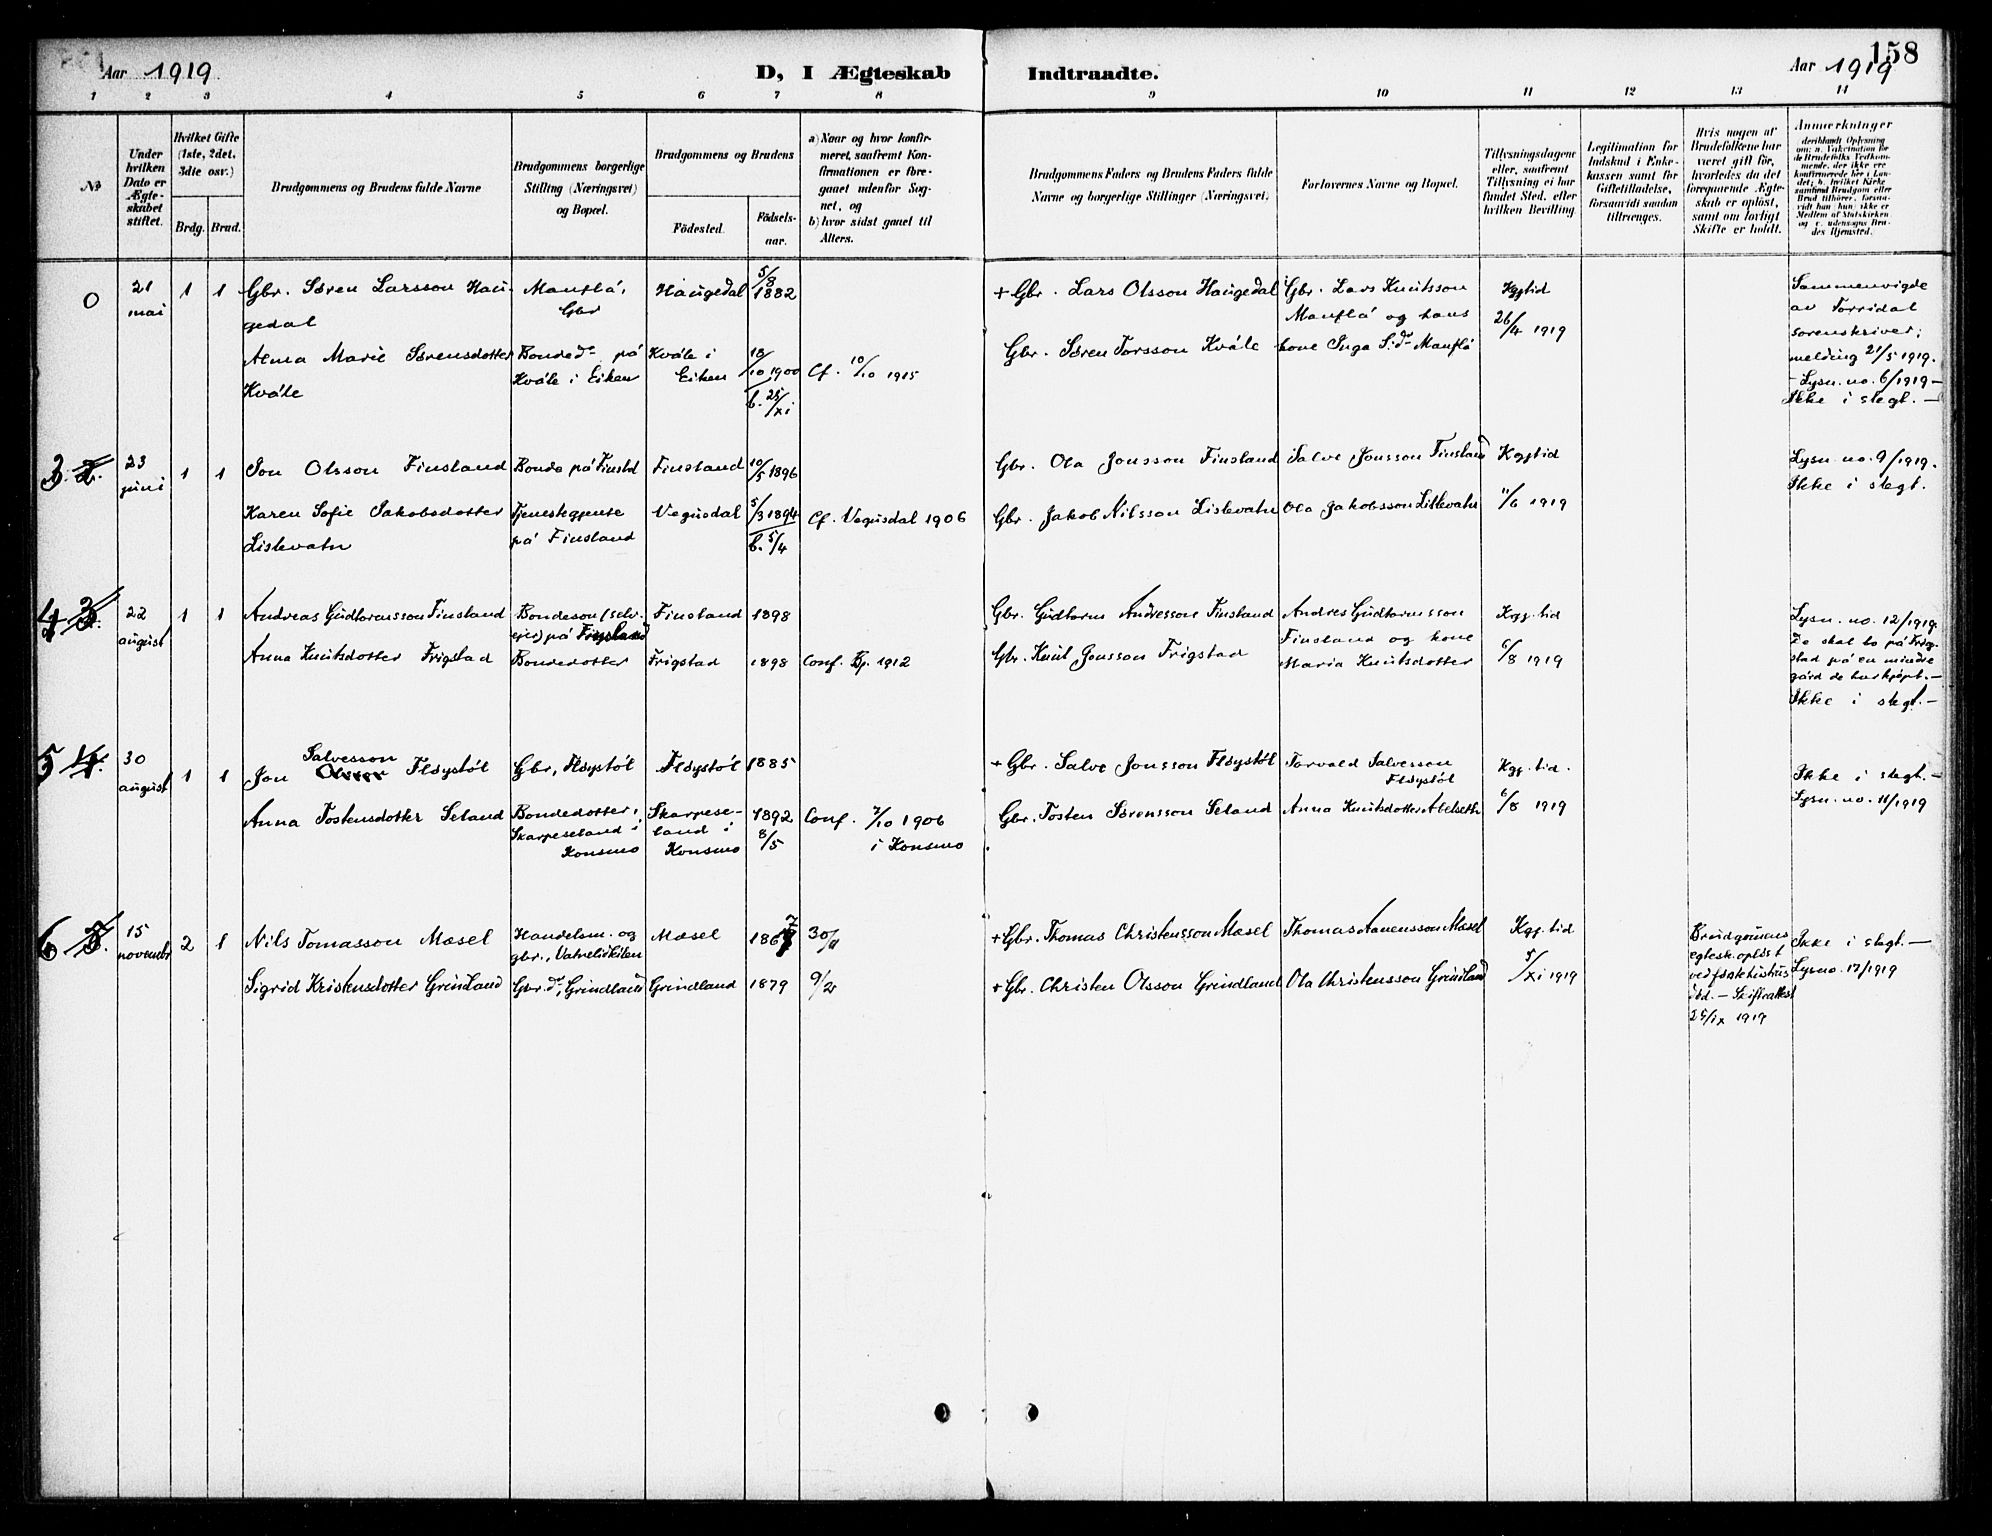 158
Aar 1919. D, I Ægteskab Indtraadte. Aar 1919
1 2 3 4 5 6 7 8 9 10 11 12 13 14
No
Under hvilken Dato er Ægteskabet stiftet.
Hvilket Gifte (1ste, 2det, 3die osv.)
Brdg. Brud.
Brudgommens og Brudens fulde Navne
Brudgommens borgerlige Stilling (Næringsvei) og Bopæl.
Brudgommens og Brudens
Födested. Födselsaar.
a) Naar og hvor konfirmeret, saafremt Konfirmationen er foregaaet udenfor Sognet, og
b) hvor sidst gaaet til Alters.
Brudgommens Faders og Brudens Faders fulde Navne og borgerlige Stillinger (Næringsvei).
Forlovernes Navne og Bopæl.
Tillysningsdagene eller, saafremt Tillysning ei har fundet Sted, efter hvilken Bevilling.
Legitimation for Indskud i Enkekassen samt for Giftetilladelse, forsaavidt saadan tiltrænges.
Hvis nogen af Brudefolkene har været gift för, hvorledes da det foregaaende Ægteskab er oplöst, samt om lovligt Skifte er holdt.
Anmerkninger
deriblandt Oplysning om: a. Vakcination for de Brudefolks Vedkommende, der ikke ere konfirmerede her i Landet; b. hvilket Kirkesamfund Brudgom eller Brud tilhörer, forsaavidt han (hun) ikke er Medlem af Statskirken og c. udensogns Brudes Hjemsted.
0 21 mai 1 1 Gbr. Søren Larsson Haugedal
Manflå, Gbr
Haugedal 5/8 1882
+ Gbr. Lars Olsson Haugedal
Gbr. Lars Knutsson Manflå og hans kone Inga S.dr Manflå
Kggtid 26/4 1919
Sammenvigde av Torridal sorenskriver; melding 21/5 1919. – Lysn. no. 6/1919 – Ikke i slegt. –
Alma Marie Sørensdotter Kvåle
Bonded. på Kvåle i Eiken
Kvåle i Eiken
18/10 1900 b. 25/xi
Cf. 10/10 1915
Gbr. Søren Torsson Kvåle
3. 2. 23 juni 1 1 Jon Olsson Finsland
Bonde på Finsld
Finsland 10/5 1896
Gbr. Ola Jonsson Finsland
Salve Jonsson Finsland
Kggtid 11/6 1919
Lysn. no. 9/1919. Ikke i slegt.
Karen Sofie Jakobsdotter Lislevatn
Tjenestegjente på Finsland
Vegusdal 5/3 1894 b. 5/4
Cf. Vegusdal 1906
Gbr. Jakob Nilsson Lislevatn
Ola Jakobsson Lislevatn
4 3. 22 august 1 1 Andreas Gudtormsson Finsland
Bondeson (selveier) på Finsland
Finsland 1898
Gbr. Gudtorm Andresson Finsland
Andres Gudtormsson Finsland og kone Maria Knutsdotter
Kgg. tid 6/8 1919
Lysn. no. 12/1919. De skal bo på Frigstad på en mindre gård de har kjøpt. – Ikke i slegt. –
Anna Knutsdotter Frigstad
Bondedotter
Frigstad 1898
Conf. Bj. 1912
Gbr. Knut Jonsson Frigstad
5 4. 30 august 1 1 Jon Salvesson Olsson Fløystøl
Gbr, Fløystøl
Fløystøl 1885
+ Gbr. Salve Jonsson Fløystøl
Torvald Salvesson Fløystøl
Kgg. tid. 6/8 1919
Ikke i slegt. – Lysn. no. 11/1919
Anna Tostensdotter Seland
Bondedotter, Skarpeseland i Konsmo
Skarpeseland i Konsmo
1892 8/5
Conf. 7/10 1906 i Konsmo
Gbr. Tosten Sørensson Seland
Anna Knutsdotter Abelseth
6 5. 15 novembr 2 1 Nils Tomasson Mæsel
Handelsm. og gbr., Vatnelidkilen
Mæsel 1867
+ Gbr. Thomas Christensson Mæsel
Thomas Aanensson Mæsel
Kgg. tid 5/xi 1919
Brudgomens egtesk. opløst ved død. – Skifteattest 25/ix 1919
Ikke i slegt. – Lysno. 17/1919
Sigrid Kristensdotter Grindland
Gbr.d, Grindland
Grindland 1879
+ Gbr. Christen Olsson Grindland
Ola Christensson Grindland